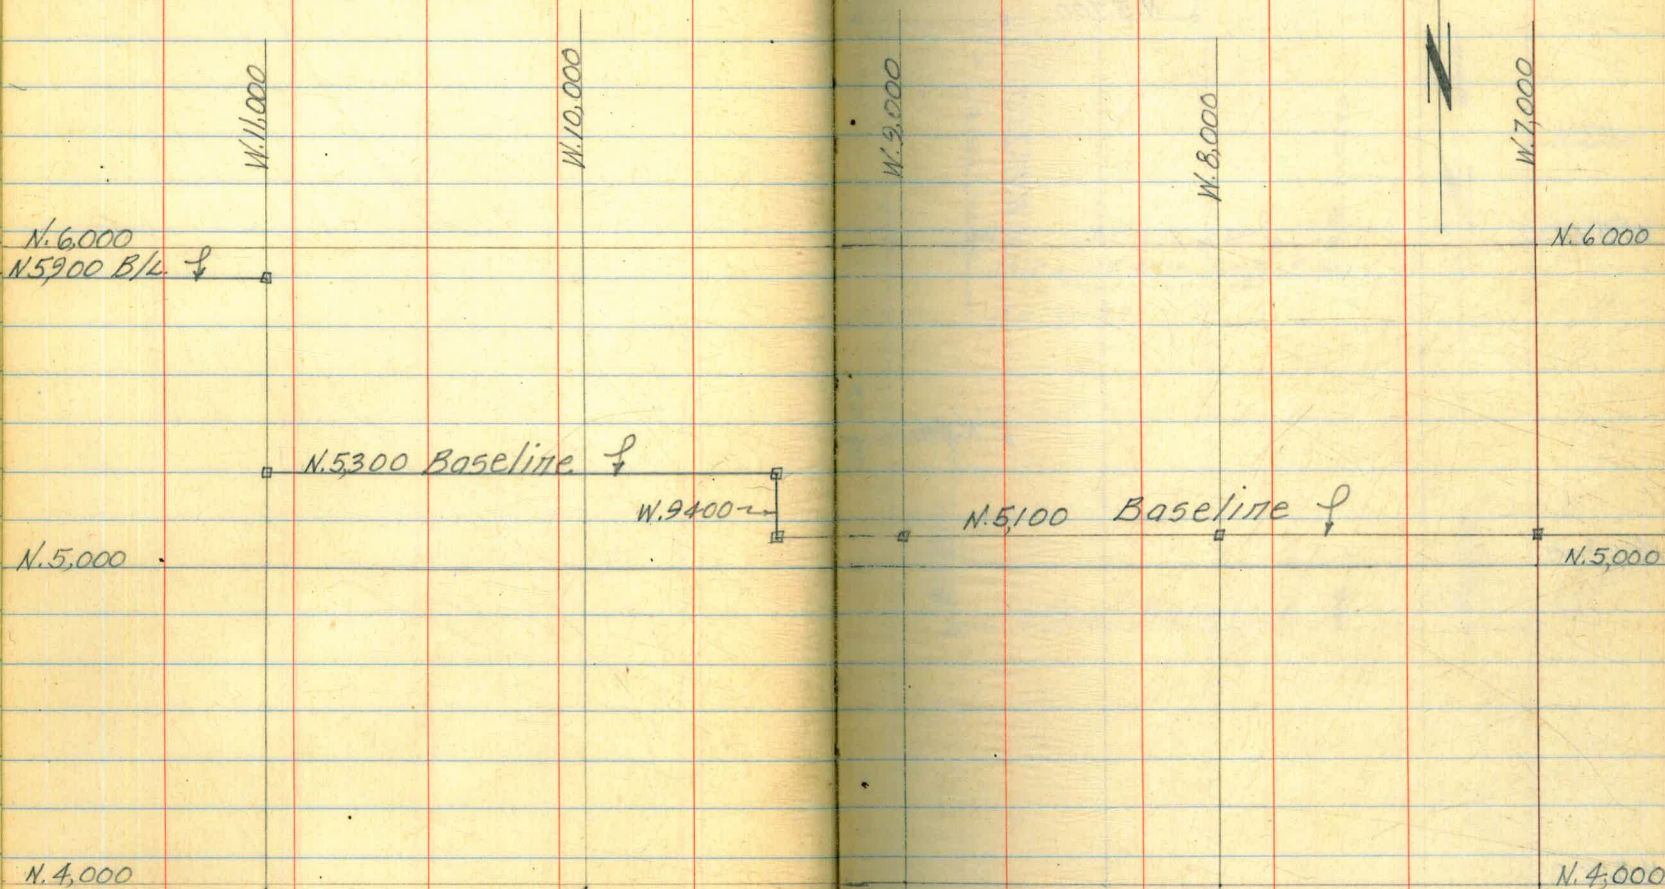 W.11,000
W.10,000
W.9,000
W.8,000
N
W.7,000
N.6,000
N. 6000
N5900 B/L
N.5,300 Baseline
W.9400
N.5,100 Baseline
N.5,000
N.5,000
N.4,000
N.4,000